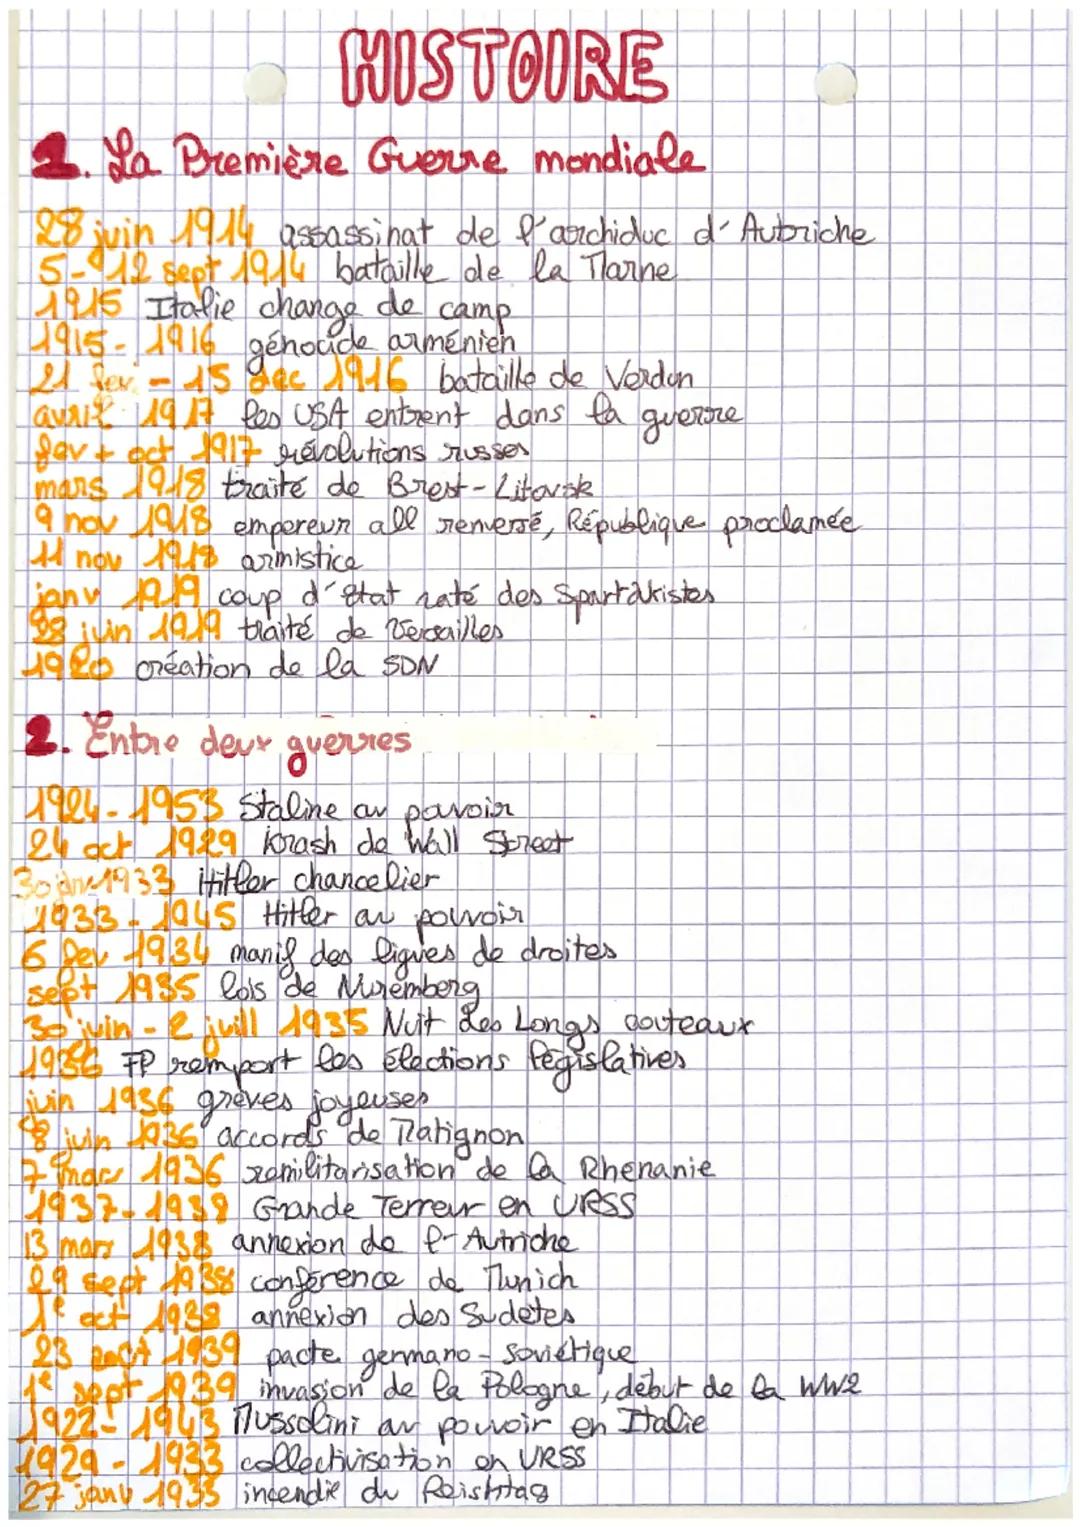 HISTOIRE
1. La Première Guerre mondiale
28 juin 1914 assassinat de l'archiduc d'Autriche
5-12 sept 1914 bataille de la Marne
1915 Italie change de camp
1915-1916 génocide arménien
21 fev - 15 dec 1916 bataille de Verdun
avril 1917 les USA entrent dans la guerre
fev + oct 1917 révolutions russes
mars 1918 traité de Brest-Litovsk
9 nov 1918 empereur all renversé, République proclamée
11 nov 1918 armistice
janv 1919 coup d'état raté des Spartakistes
28 juin 1919 traité de Versailles
1920 création de la SDN
2. Entre deux guerres
1924-1953 Staline au pouvoir
24 oct 1929 krash de Wall Street
30 janv 1933 Hitler chancelier
1933-1945 Hitler au pouvoir
6 fev 1934 manif des ligues de droites
sept 1935 lois de Nuremberg
30 juin - 2 juill 1935 Nuit des Longs couteaux
1936 FP remport les élections législatives
juin 1936 grèves joyeuses
8 juin 1936 accords de Matignon
7 mars 1936 remilitarisation de la Rhénanie
1937-1938 Grande Terreur en URSS
13 mars 1938 annexion de l-Autriche
29 sept 1938 conférence de Munich
1e oct 1938 annexion des Sudètes
23 août 1939 pacte germano-soviétique
1e sept 1939 invasion de la Pologne, début de la WW2
1922-1943 Mussolini au pouvoir en Italie
1929-1933 collectivisation en URSS
27 janv 1933 incendie du Reishtag